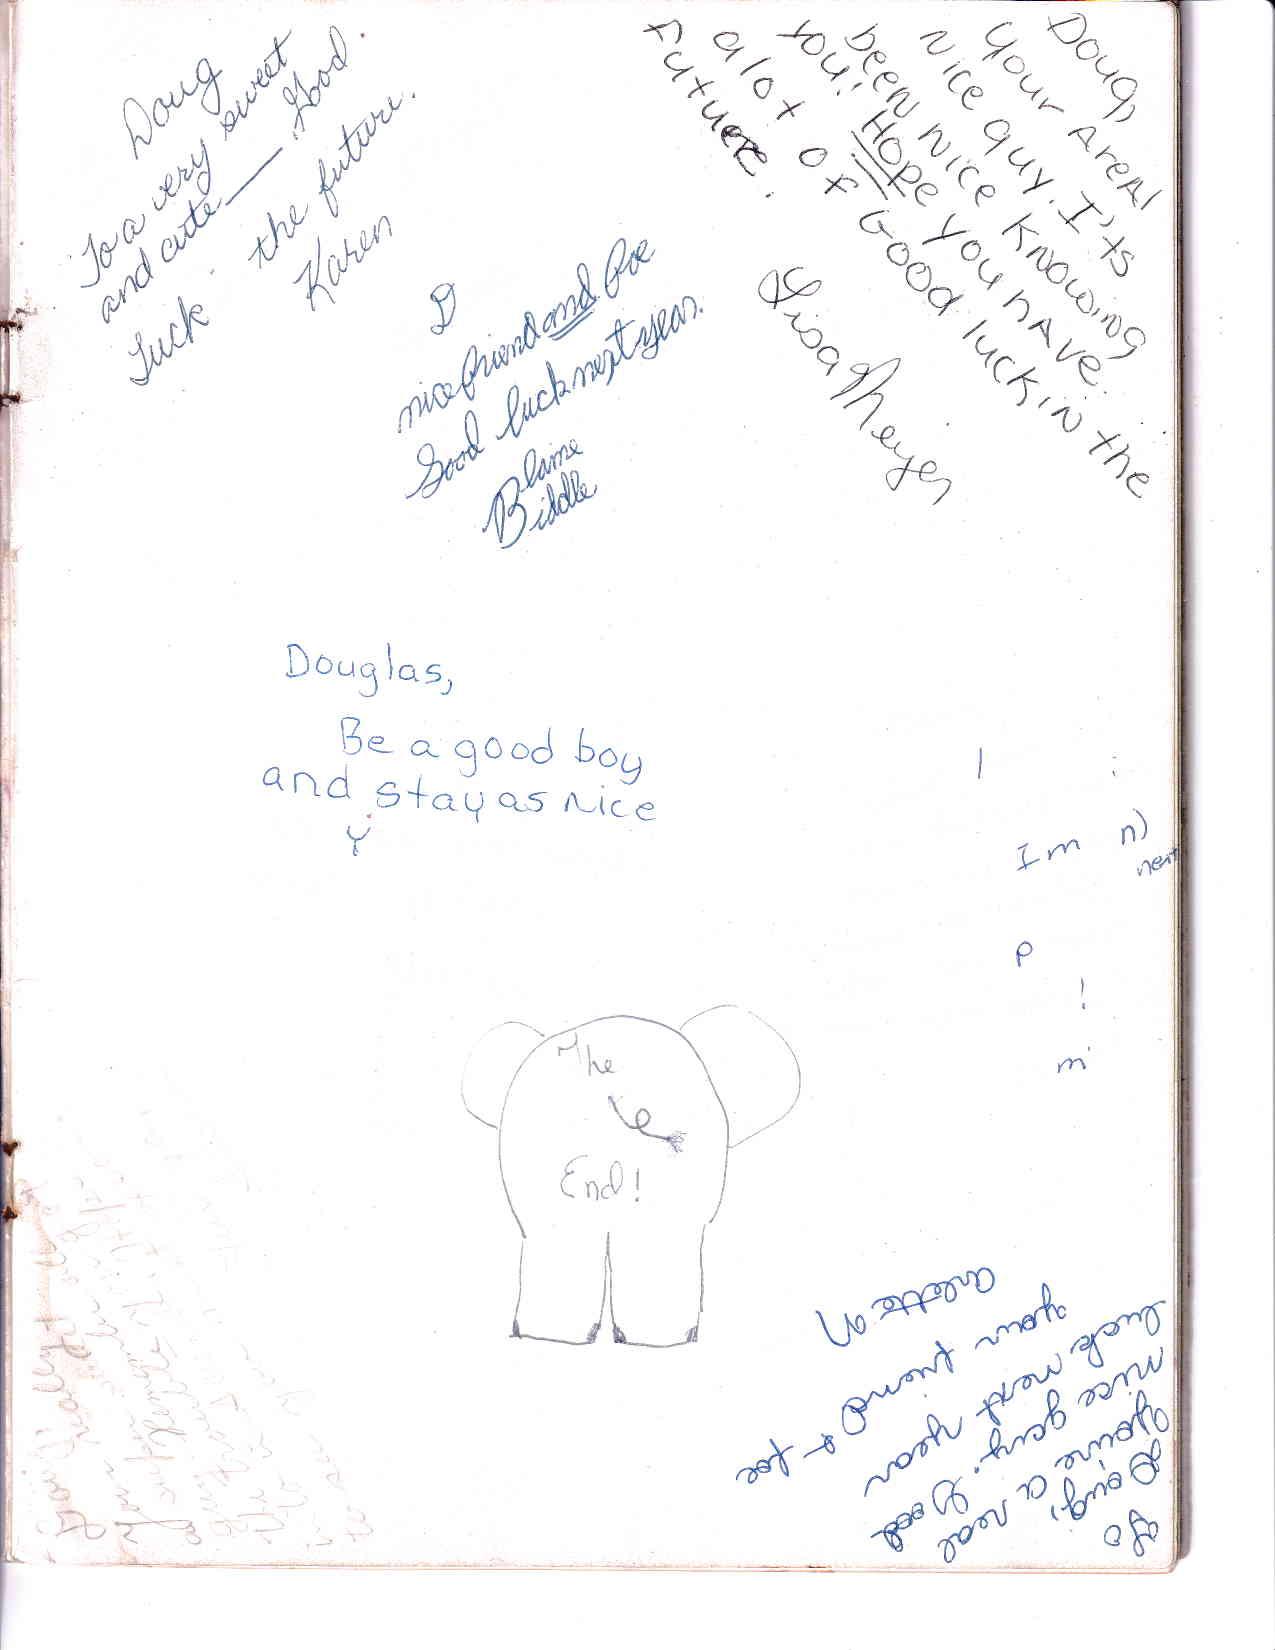 Doug
To a very sweet
and cute — Good
Luck the future.
Karen
Doug,
Your A real
nice guy. I'ts
been nice knowing
you! Hope you have
alot of Good luck in the
future.
Lisa Meyer
D
nice friend and foe
Good luck next year.
Blaine
Biddle
Douglas,
Be a good boy
and stay as nice
y
I
Im n)
next
p
!
m
The
End!
To
Doug,
You're a real
nice guy. Good
luck next year
your friend & foe
Arlette M